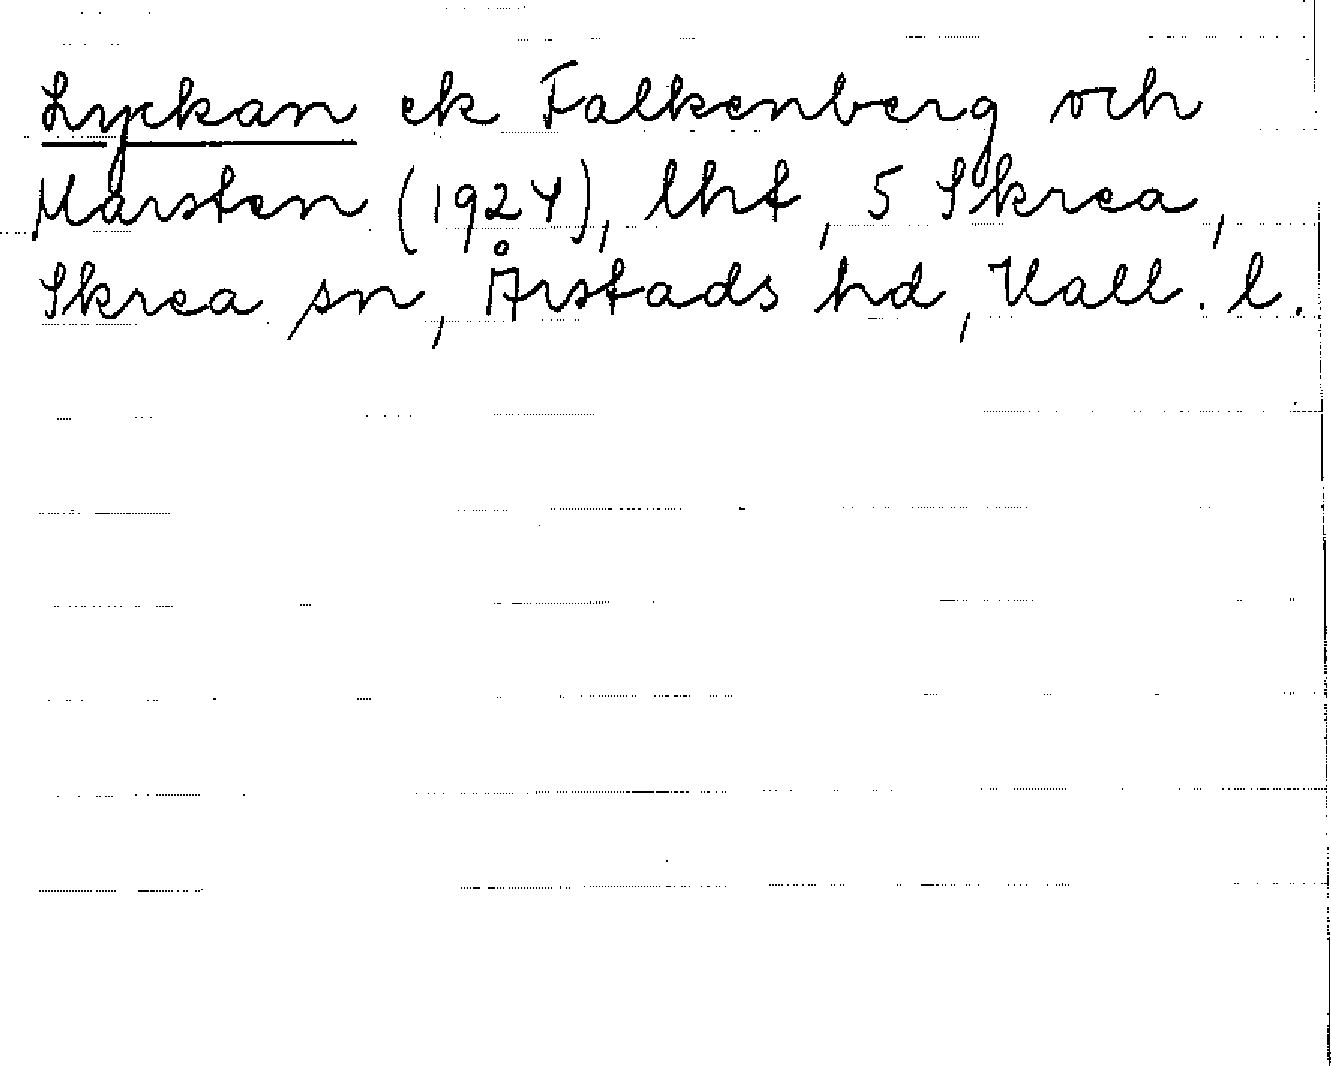 Lyckan ek Falkenberg och
Marsten (1924), lht, 5 Skrea,
Skrea sn, Årstads hd, Hall. l.